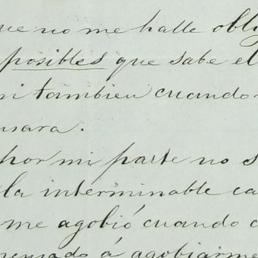 ue no me halle obli
posibles que sabe el
ni tambien cuando
nsara.
por mi parte no s
la interminable ca
me agobió cuando
pensado á agobiarme